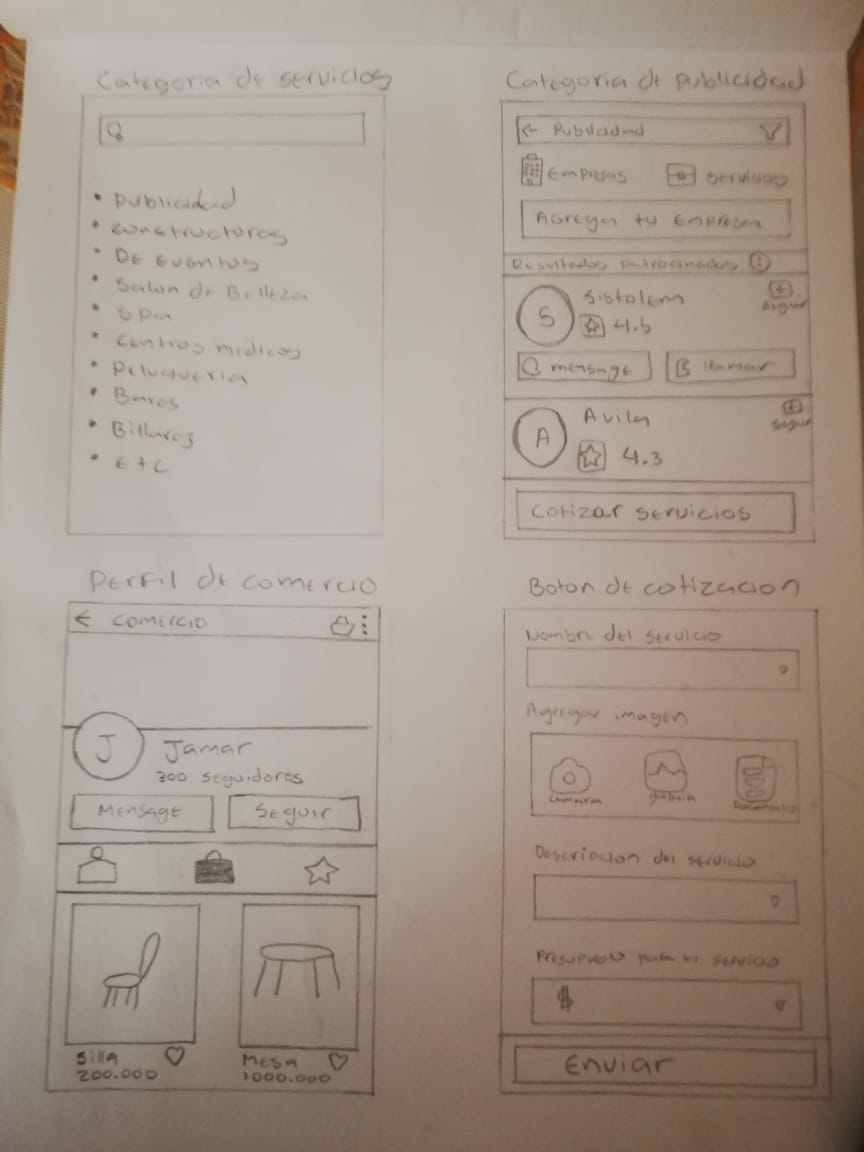 Categoria de servicios
Publicidad
constructoras
De Eventos
Salon de Belleza
Spa
Centros medicos
Peluqueria
Bares
Billares
Etc
Categoria de Publicidad
← Publicidad
Empresas
servicios
Agregar tu Empresa
Resultados patrocinados
S
Sistolem
Seguir
4.5
mensage
llamar
A
Avila
Seguir
4.3
Cotizar servicios
Perfil de comercio
← comercio
J
Jamar
300 seguidores
Mensage
Seguir
Silla
200.000
Mesa
1000.000
Boton de cotizacion
Nombre del servicio
Agregar imagen
camara
galeria
Documento
Descripcion del servicio
Presupuesto para el servicio
$
Enviar